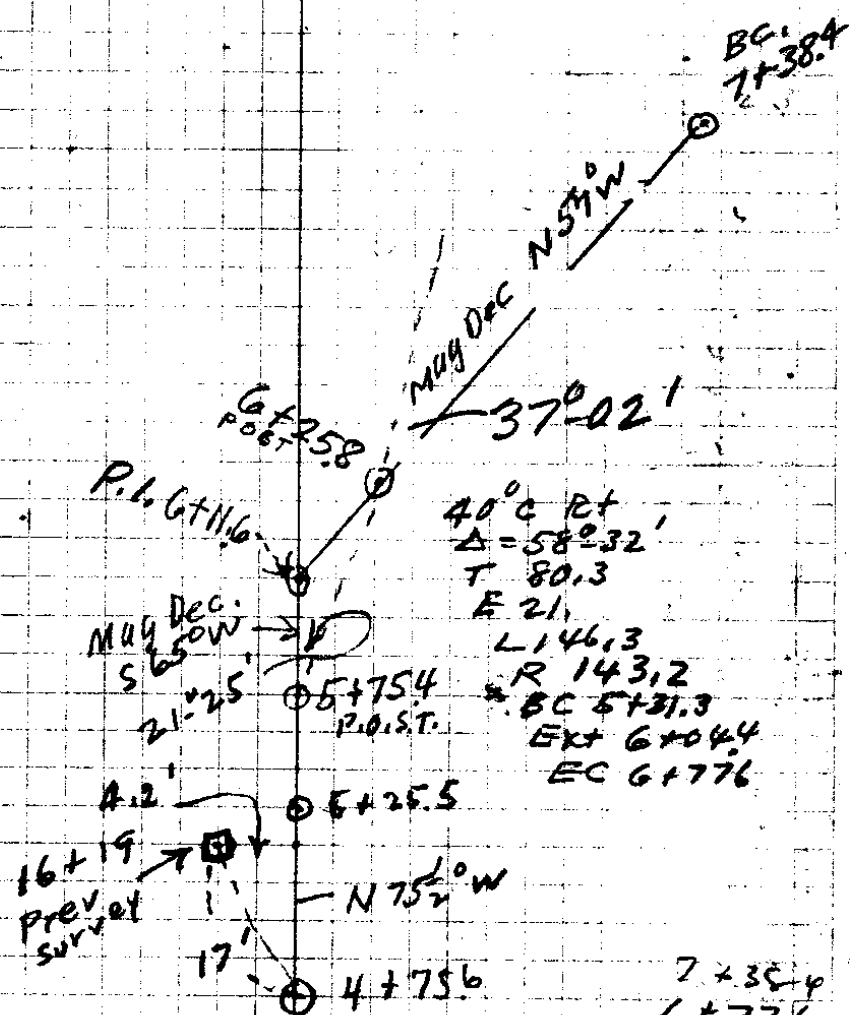 B.C.
7+38.4
N 57° W
Mag Dec
37°-02'
6+25.8
POST
P.I. 6+11.6
40° C Rt
Δ = 58°-32'
T 80.3
E 21.
L 146.3
R 143.2
BC 5+31.3
Ext 6+04.4
EC 6+77.6
Mag Dec.
S 65° W
21°-25'
5+75.4
P.O.S.T.
4.2'
5+25.5
16+19
Prev
Survey
N 75½° W
17'
4+75.6